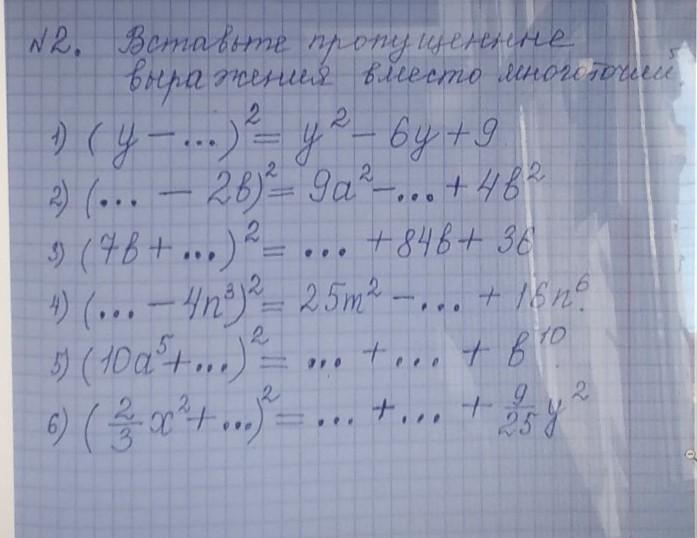 №2. Вставьте пропущенные
выражения вместо многоточий
1) (y - ...)² = y² - 6y + 9
2) (... - 2b)² = 9a² - ... + 4b²
3) (7b + ...)² = ... + 84b + 36
4) (... - 4n³)² = 25m² - ... + 16n⁶.
5) (10a⁵ + ...)² = ... + ... + b¹⁰.
6) (2/3 x² + ...)² = ... + ... + 9/25 y²